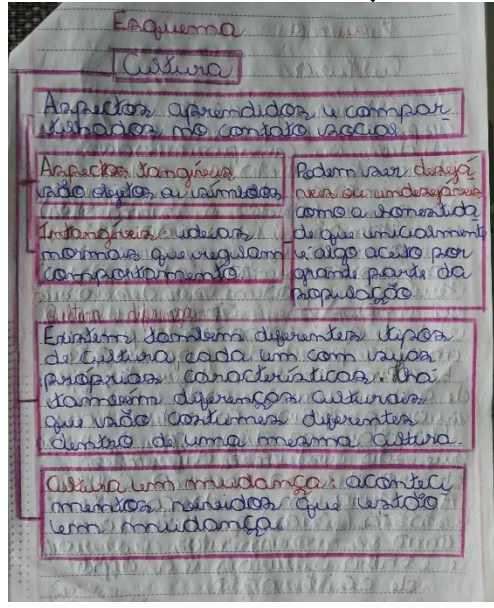 Esquema
Cultura
Aspectos aprendidos e compar
tilhados no contato social
Aspectos tangíveis
são objetos ou símbolos
Intangíveis: ideias
normais que regulam
comportamento
Podem ser desejá
veis ou indesejáveis
como a honestida
de que unicialmente
é algo aceito por
grande parte da
população
Cultura e diferença
Existem também diferentes tipos
de cultura cada um com suas
próprias características. Há
também diferenças culturais
que são costumes diferentes
dentro de uma mesma cultura.
Cultura em mudança: aconteci
mentos que estão
em mudança